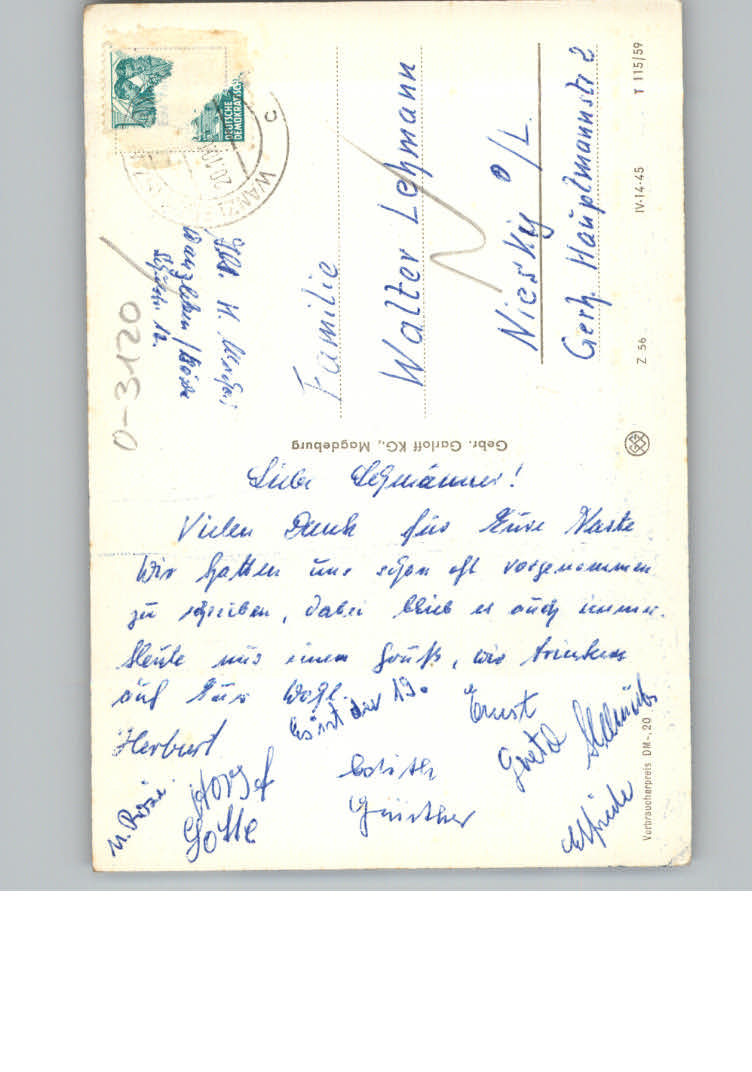 DEUTSCHE
DEMOKRATISCHE
WANZ
20.10
c
0-3120
Abs. H.
Wanzleben/Börde
12.
Familie
Walter Lehmann
Niesky O/L.
Gerh. Hauptmannstr 2
Gebr. Garloff KG., Magdeburg
Z 56
IV-14-45
T 115/59
Liebe Lehmänner!
Vielen Dank für Eure Karte
Wir hatten uns schon oft vorgenommen
zu schreiben, dabei blieb es auch immer.
Heute nur einen Gruß, wir trinken
auf Euer Wohl.
Es ist der 19.
Herbert
Ernst
Gretel
Helmut
u. Rosi.
Horst
Lotte
Edith
Günther
Elfriede
Verbraucherpreis DM-,20